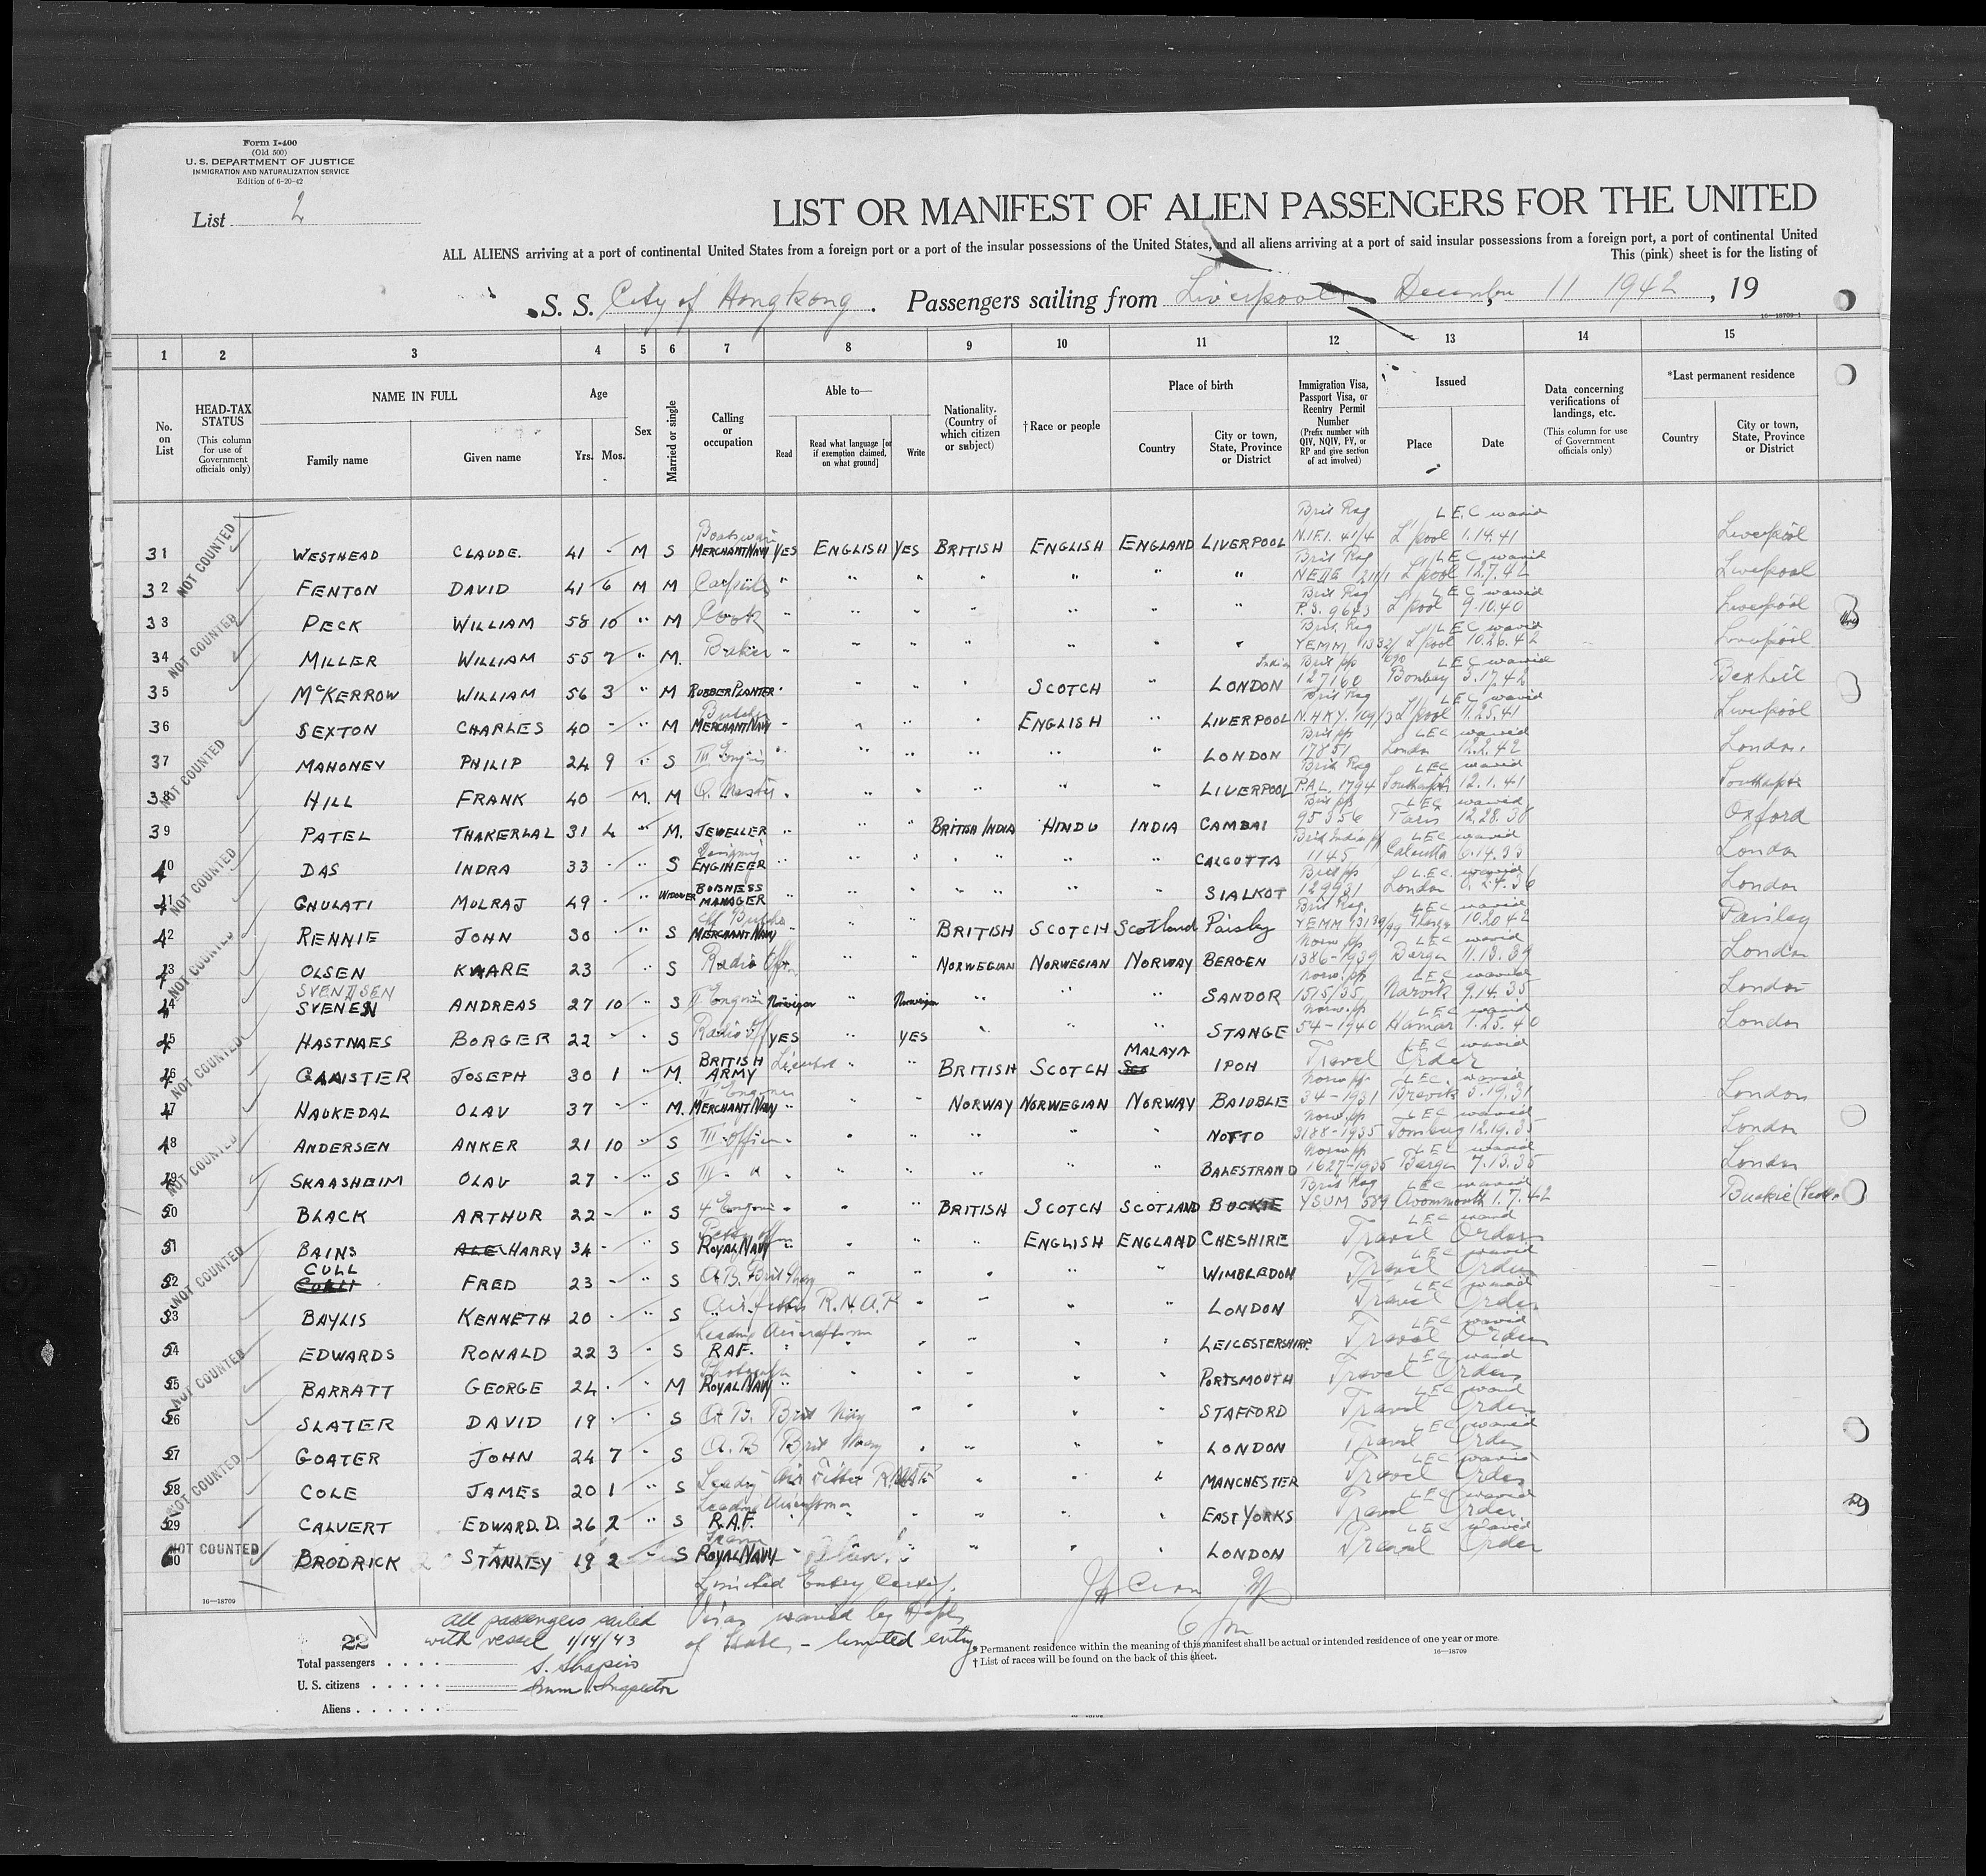 Form I-400
(Old 500)
U. S. DEPARTMENT OF JUSTICE
IMMIGRATION AND NATURALIZATION SERVICE
Edition of 6-20-42
List 2
LIST OR MANIFEST OF ALIEN PASSENGERS FOR THE UNITED
ALL ALIENS arriving at a port of continental United States from a foreign port or a port of the insular possessions of the United States, and all aliens arriving at a port of said insular possessions from a foreign port, a port of continental United
This (pink) sheet is for the listing of
S. S. City of Hongkong. Passengers sailing from Liverpool December 11 1942, 19
16—18709-1
1 2 3 4 5 6 7 8 9 10 11 12 13 14 15
No. on List
HEAD-TAX STATUS (This column for use of Government officials only)
NAME IN FULL
Family name Given name
Age
Yrs. Mos.
Sex
Married or single
Calling or occupation
Able to—
Read Read what language [or if exemption claimed, on what ground] Write
Nationality. (Country of which citizen or subject)
†Race or people
Place of birth
Country City or town, State, Province or District
Immigration Visa, Passport Visa, or Reentry Permit Number (Prefix number with QIV, NQIV, PV, or RP and give section of act involved)
Issued
Place Date
Data concerning verifications of landings, etc. (This column for use of Government officials only)
*Last permanent residence
Country City or town, State, Province or District
Brit Reg LEC waived
31 WESTHEAD CLAUDE. 41 - M S Boatswain MERCHANT NAVY YES ENGLISH YES BRITISH ENGLISH ENGLAND LIVERPOOL N.I.F.1. 41/4 L'pool 1.14.41 Liverpool
Brit Reg LEC waived
32 FENTON DAVID 41 6 M M " " " " " " " L'pool 12.7.42 Liverpool
Brit Reg LEC waived
33 PECK WILLIAM 58 10 " M Cook " " " " " " " P.S. 9643 L'pool 9.10.40 Liverpool
Brit Reg LEC waived
34 MILLER WILLIAM 55 7 " M. Baker " " " " " " " YEMM 1332/690 L'pool 10.26.42 Liverpool
Indian Brit pp LEC waived
35 McKERROW WILLIAM 56 3 " M RUBBER PLANTER " " " " SCOTCH " LONDON 127160 Bombay 3.17.42 Bexhill
Brit Reg LEC waived
36 SEXTON CHARLES 40 - " M Butcher MERCHANT NAVY " " " " ENGLISH " LIVERPOOL N.HKY. 169/3 L'pool 11.25.41 Liverpool
Brit pp LEC waived
37 MAHONEY PHILIP 24 9 " S III Engin " " " " " " LONDON 17851 London 12.2.42 London.
Brit Reg LEC waived
38 HILL FRANK 40 M. M Q. Master " " " " " " LIVERPOOL P.A.L. 1794 Southampton 12.1.41 Southampton
Brit pp LEC waived
39 PATEL THAKERLAL 31 4 " M. JEWELLER " " " BRITISH INDIA HINDU INDIA CAMBAI 95356 Paris 12.28.38 Oxford
Brit India pp LEC waived
40 DAS INDRA 33 - " S ENGINEER " " " " " " CALCUTTA 1145 Calcutta 6.14.33 London
Brit pp L.E.C. waived
41 GHULATI MULRAJ 49 - " WIDOWER BUSINESS MANAGER " " " " " " SIALKOT 129931 London 6.24.36 London
Brit Reg. LEC waived
42 RENNIE JOHN 30 " S MERCHANT NAVY " " " BRITISH SCOTCH Scotland Paisley YEMM 93139/49 10.20.42 Paisley
Norw pp LEC waived
43 OLSEN KWARE 23 " S Radio Offr " " " NORWEGIAN NORWEGIAN NORWAY BERGEN 1386-1939 Bergen 11.13.39 London
SVENDSEN Norw. pp LEC waived
44 SVENESN ANDREAS 27 10 " S II Engin Norwegian " Norwegian " " " SANDOR 1515/35 Narvik 9.14.35 London
Norw. pp LEC waived
45 HASTNAES BORGER 22 - " S Radio Off YES " YES " " " STANGE 54-1940 Hamar 1.25.40 London
MALAYA LEC waived
46 GAAISTER JOSEPH 30 1 " M. BRITISH ARMY " " " BRITISH SCOTCH IPOH Travel Order
Norw pp LEC. waived
47 HAUKEDAL OLAV 37 - " M. II Engineer MERCHANT NAVY " " " NORWAY NORWEGIAN NORWAY BAIDBLE 34-1931 Brevik 5.19.31 London
Norw pp LEC waived
48 ANDERSEN ANKER 21 10 " S III officer " " " " " " NOTTO 3188-1935 Tonsberg 12.19.35 London
Norw pp LEC waived
49 SKAASHEIM OLAV 27 - " S III " " " " " " BALESTRAND 1627-1935 Bergen 7.13.35 London
Brit Reg LEC waived
50 BLACK ARTHUR 22 - " S 4 Engin " " " BRITISH SCOTCH SCOTLAND BUCKIE YSUM 589 Avonmouth 1.7.42 Buckie (Scotl.
LEC waived
51 BAINS HARRY 34 - " S Petty off ROYAL NAVY " " " " ENGLISH ENGLAND CHESHIRE Travel Orders
CULL LEC waived
52 FRED 23 - " S A.B. Brit Navy " " " " " WIMBLEDON Travel Orders
LEC waived
53 BAYLIS KENNETH 20 - " S Air fitter R.N.A.F. " " " " LONDON Travel Order
LEC waived
54 EDWARDS RONALD 22 3 " S Leading Aircraftsman RAF. " " " " " " LEICESTERSHIRE Travel Orders
LEC waived
55 BARRATT GEORGE 24 - " M Photographer ROYAL NAVY " " " " " " PORTSMOUTH Travel Orders
LEC waived
56 SLATER DAVID 19 - " S A.B. Brit Navy " " " " STAFFORD Travel Orders
LEC waived
57 GOATER JOHN 24 7 " S A.B Brit Navy " " " " LONDON Travel Orders
LEC waived
58 COLE JAMES 20 1 " S Leading Air Fitter " " " MANCHESTER Travel Order
LEC waived
59 CALVERT EDWARD. D. 26 2 " S Leading Aircraftsman R.A.F. " " " " " " EAST YORKS Travel Order
LEC waived
60 BRODRICK STANLEY 19 2 " S ROYAL NAVY " " " " " LONDON Travel Order
NOT COUNTED
NOT COUNTED
NOT COUNTED
NOT COUNTED
NOT COUNTED
NOT COUNTED
NOT COUNTED
NOT COUNTED
NOT COUNTED
NOT COUNTED
NOT COUNTED
16—18709
Limited Entry Certif.
Visas waived by Dept
of State, - limited entry
All passengers sailed
with vessel 1/14/43
S. Shapiro
Imm. Inspector
22
Total passengers
U. S. citizens
Aliens
* Permanent residence within the meaning of this manifest shall be actual or intended residence of one year or more.
† List of races will be found on the back of this sheet.
16—18709